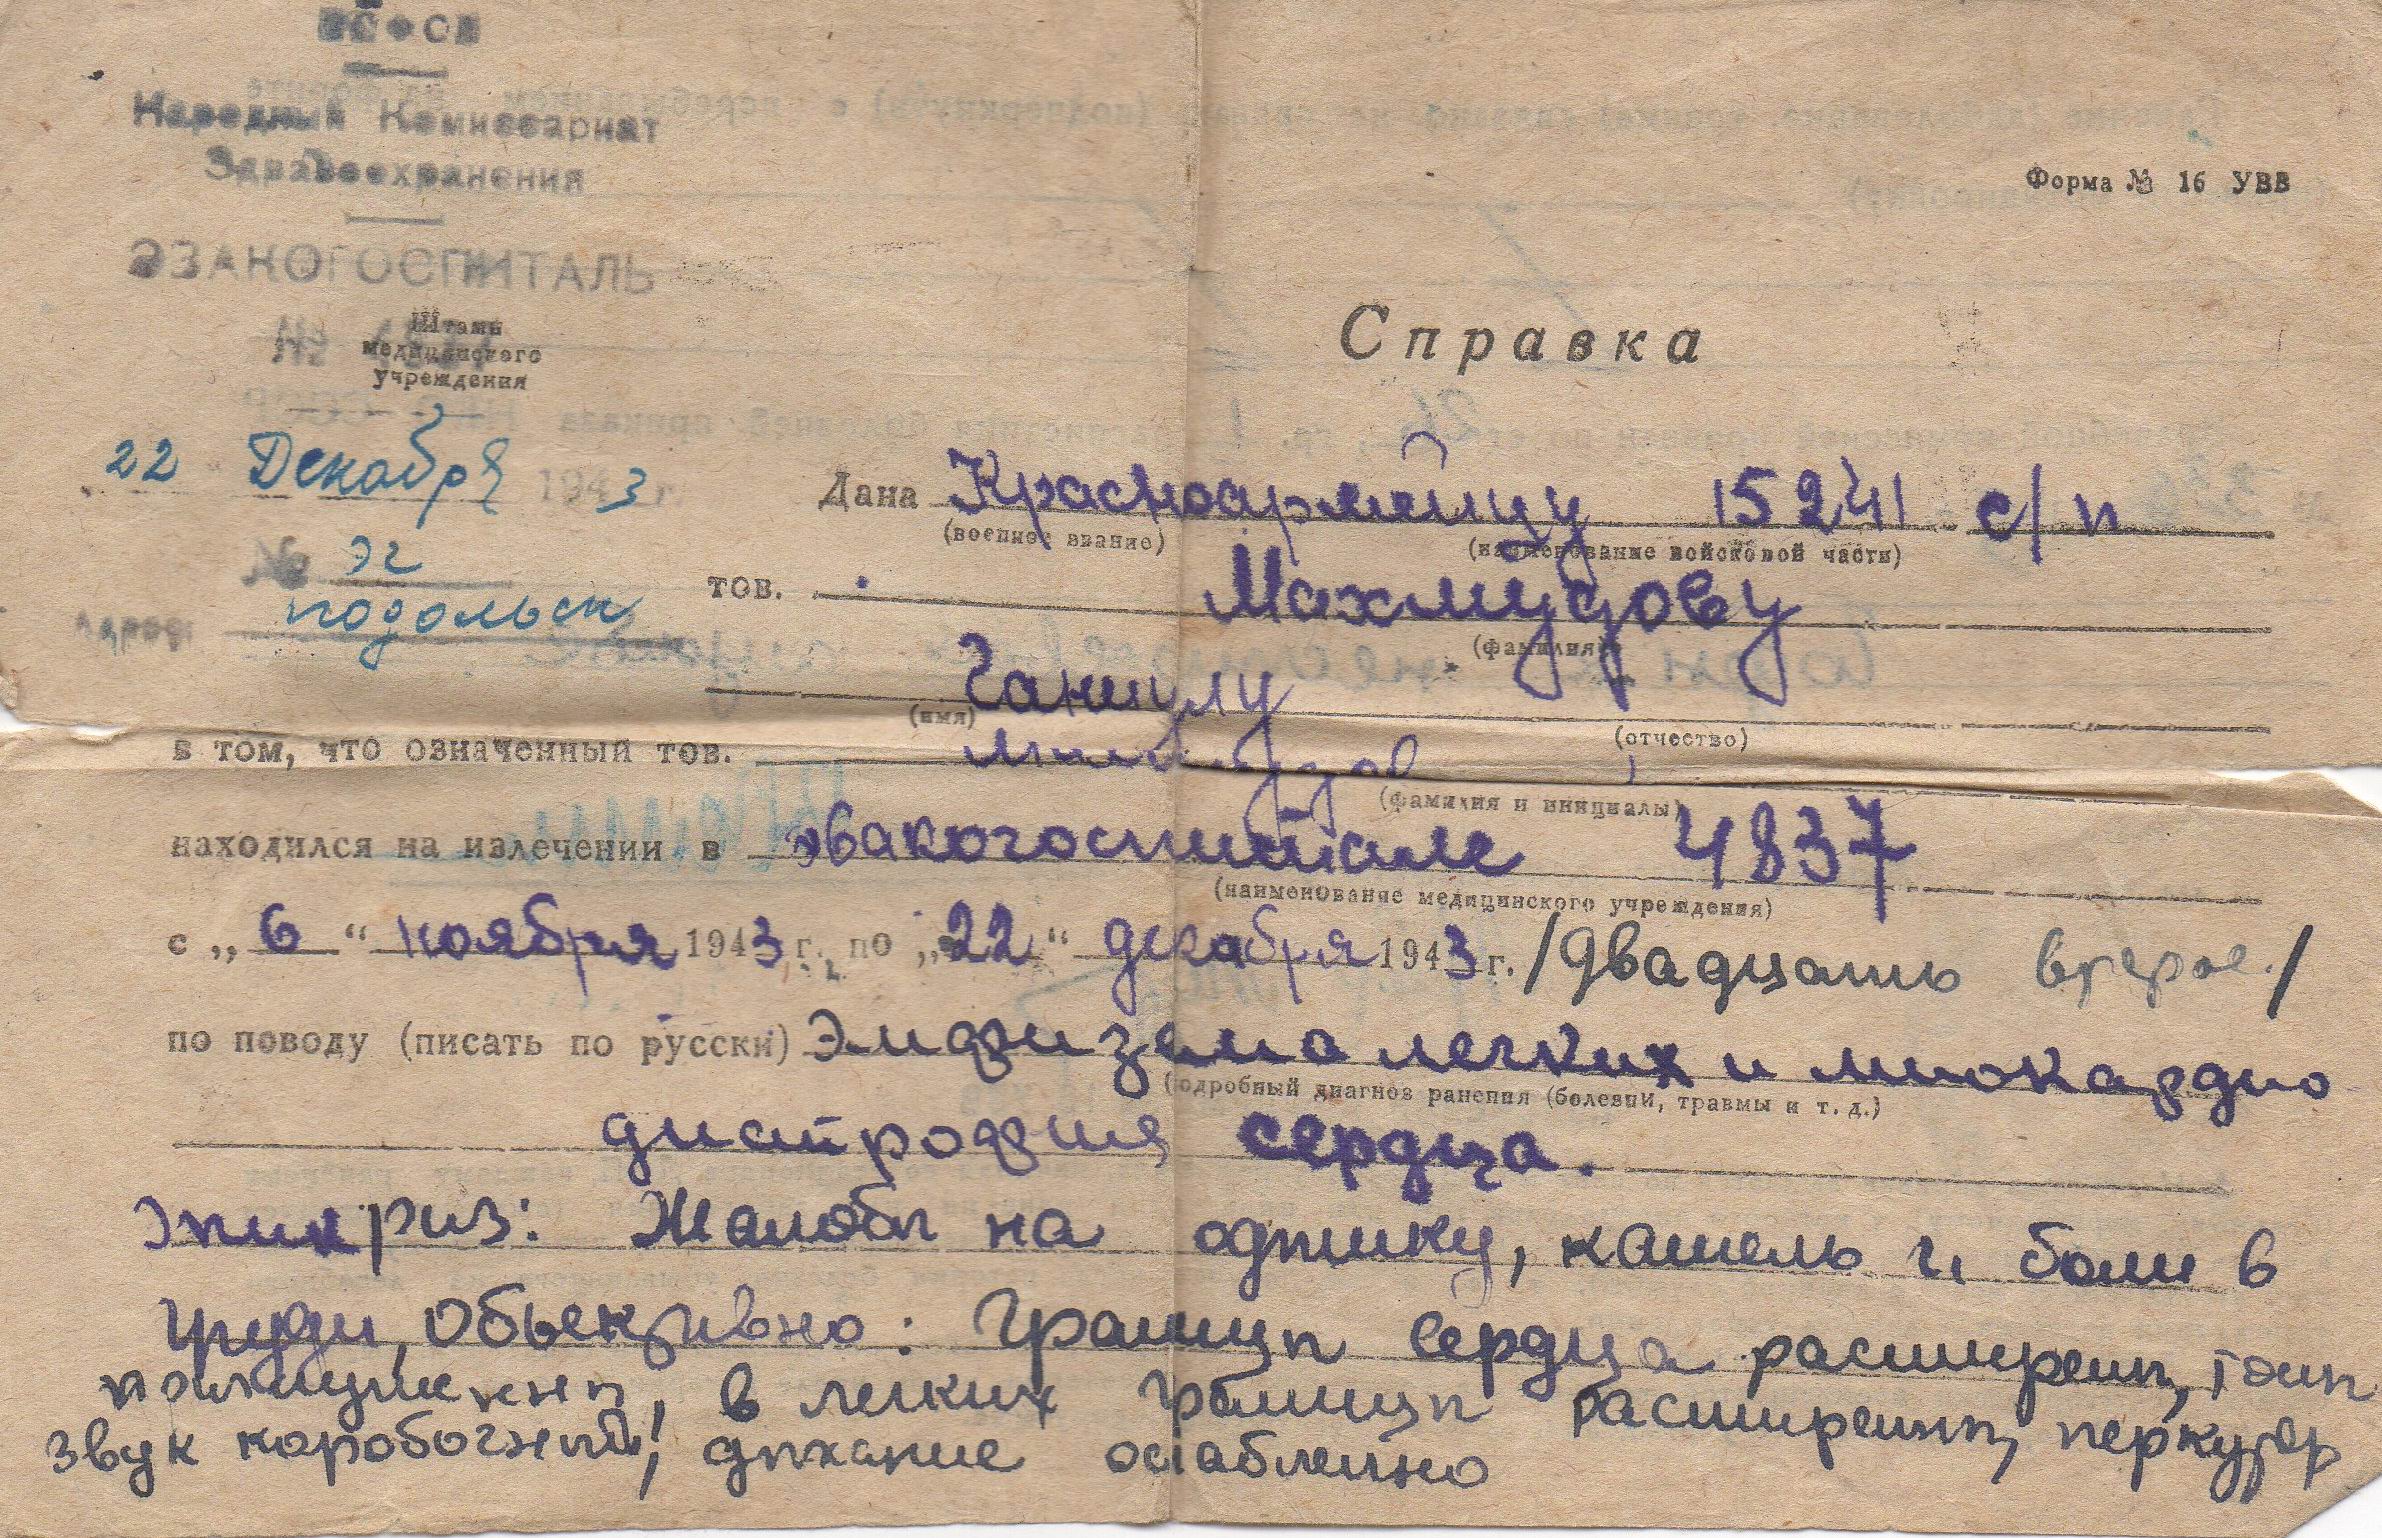 РСФСР
Народный Комиссариат
Здравоохранения
Форма № 16 УВВ
ЭВАКОГОСПИТАЛЬ
Штамп
медицинского
учреждения
Справка
22 Декабря 1943 г.
Дана Красноармейцу 15241 с/п
(военное звание) (наименование войсковой части)
№ эг
тов. Махмудову
подольск
(фамилия)
(имя) (отчество)
в том, что означенный тов.
(фамилия и инициалы)
находился на излечении в эвакогоспитале 4837
(наименование медицинского учреждения)
с „6“ ноября 1943 г. по „22“ декабря 1943 г. /двадцать второе/
по поводу (писать по русски) Эмфизема легких и миокардио
(подробный диагноз ранения (болезни, травмы и т. д.)
дистрофия сердца.
Эпикриз: Жалобы на одтшку, кашель и боли в
груди, Обьективно: Границы сердца расширены, тоны
приглушены, в легких границы расширены, перкутор
звук коробочный, дыхание ослаблено